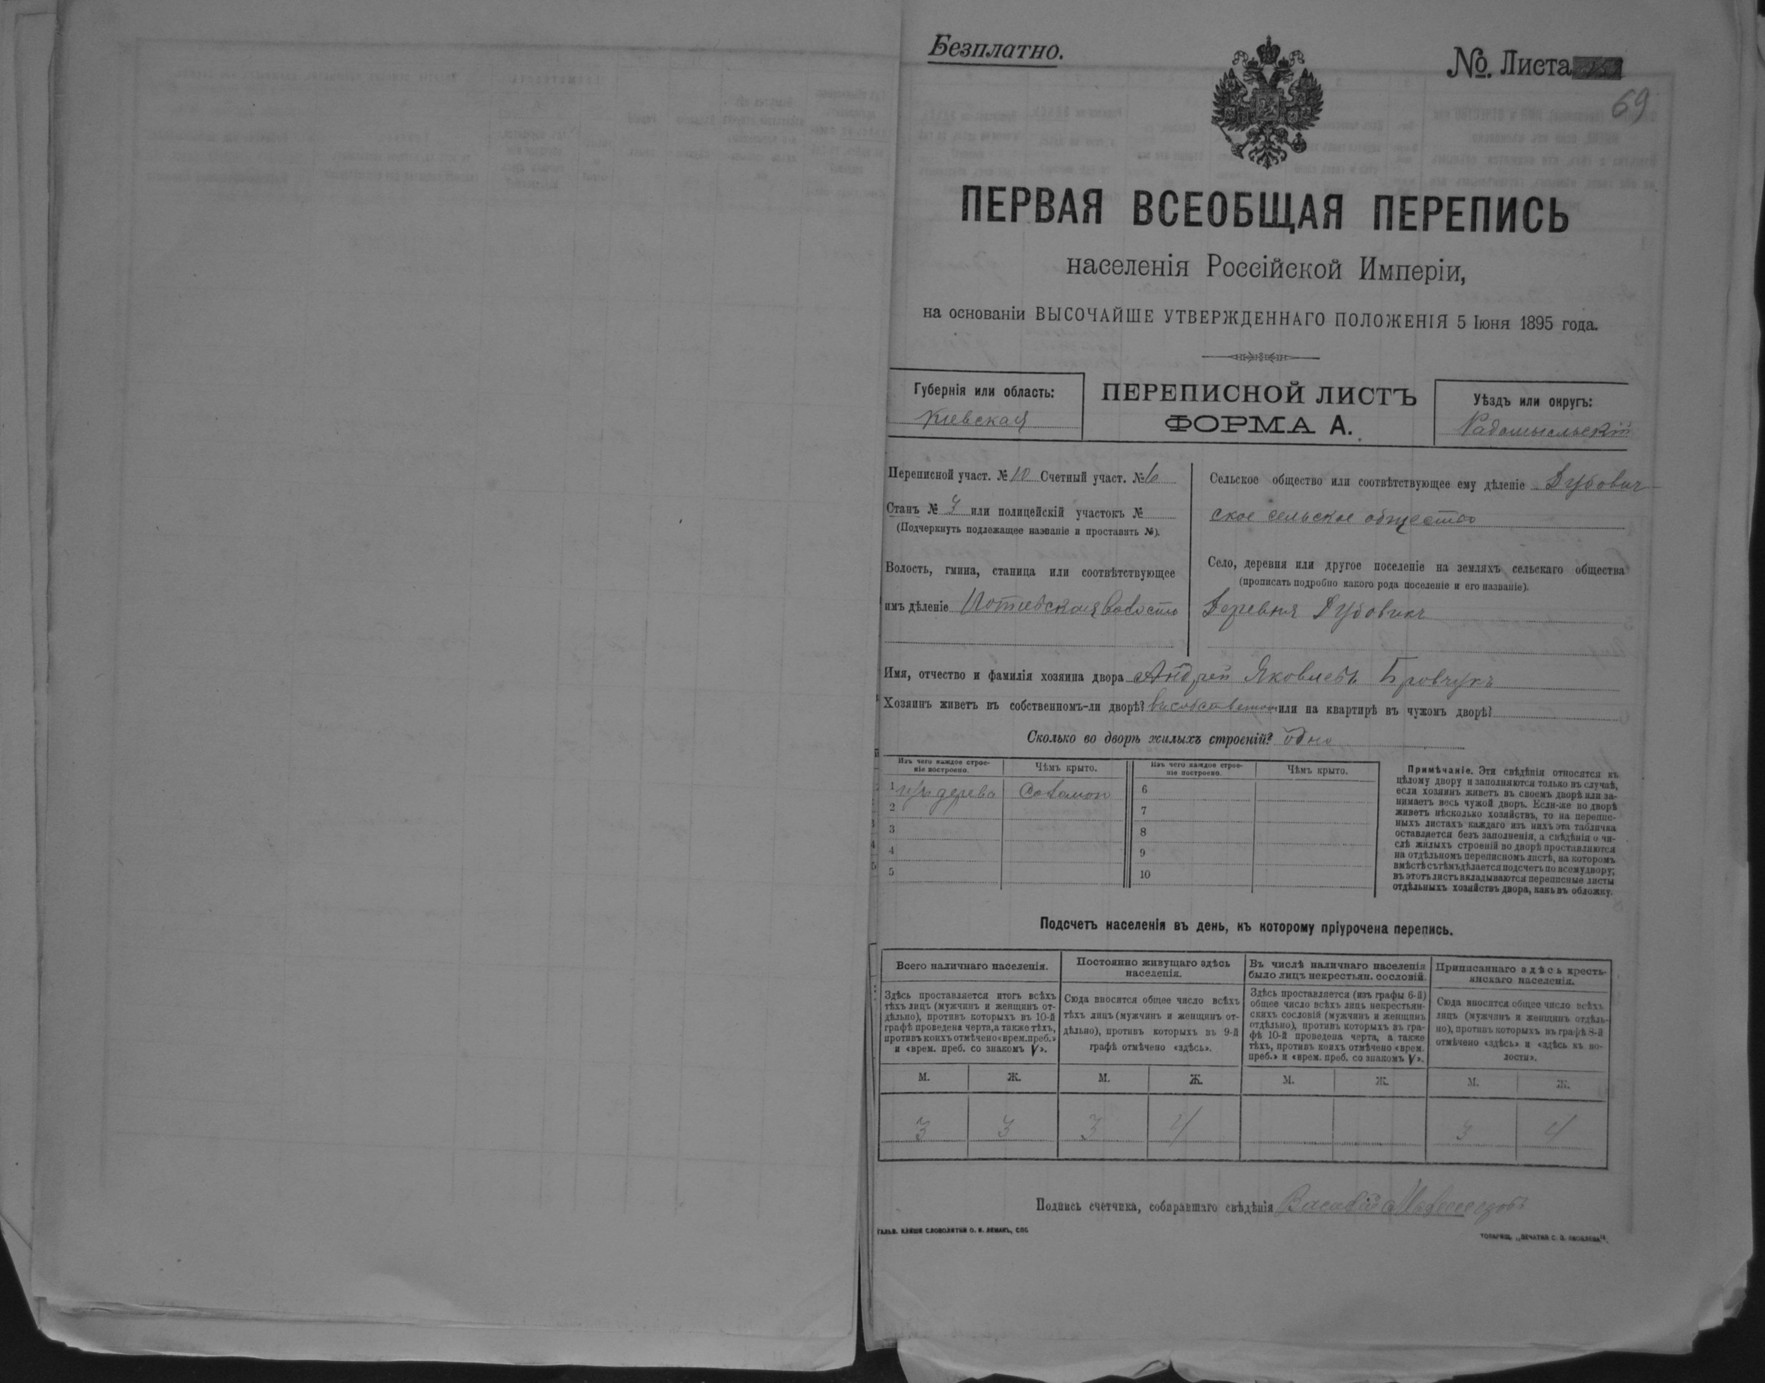 Безплатно.
№ Листа
69
ПЕРВАЯ ВСЕОБЩАЯ ПЕРЕПИСЬ
населенія Россійской Имперіи,
на основаніи ВЫСОЧАЙШЕ УТВЕРЖДЕННАГО ПОЛОЖЕНІЯ 5 Іюня 1895 года.
Губернія или область:
Кіевская
ПЕРЕПИСНОЙ ЛИСТЪ
ФОРМА А.
Уѣздъ или округъ:
Радомысльскій
Переписной участ. № 10 Счетный участ. № 6
Станъ № или полицейскій участокъ №
(Подчеркнуть подлежащее названіе и проставить №).
Волость, гмина, станица или соотвѣтствующее
имъ дѣленіе Потіевская волость
Сельское общество или соотвѣтствующее ему дѣленіе Дубович-
ское сельское общество
Село, деревня или другое поселеніе на земляхъ сельскаго общества
(прописать подробно какого рода поселеніе и его названіе).
Деревня Дубовикъ
Имя, отчество и фамилія хозяина двора Андрей Яковлевъ Бровчукъ
Хозяинъ живетъ въ собственномъ-ли дворѣ? въ собственномъ или на квартирѣ въ чужомъ дворѣ?
Сколько во дворѣ жилыхъ строеній? одно
Изъ чего каждое строе-
ніе построено.
Чѣмъ крыто.
Изъ чего каждое строе-
ніе построено.
Чѣмъ крыто.
1 изъ дерева Соломой 6
2 7
3 8
4 9
5 10
Примѣчаніе. Эти свѣдѣнія относятся къ
цѣлому двору и заполняются только въ случаѣ,
если хозяинъ живетъ въ своемъ дворѣ или за-
нимаетъ весь чужой дворъ. Если-же во дворѣ
живетъ нѣсколько хозяйствъ, то на перепис-
ныхъ листахъ каждаго изъ нихъ эта табличка
оставляется безъ заполненія, а свѣдѣнія о чи-
слѣ жилыхъ строеній во дворѣ проставляются
на отдѣльномъ переписномъ листѣ, на которомъ
вмѣстѣ съ тѣмъ дѣлается подсчетъ по всему двору;
въ этотъ листъ вкладываются переписные листы
отдѣльныхъ хозяйствъ двора, какъ въ обложку.
Подсчетъ населенія въ день, къ которому пріурочена перепись.
Всего наличнаго населенія.
Здѣсь проставляется итогъ всѣхъ
тѣхъ лицъ (мужчинъ и женщинъ от-
дѣльно), противъ которыхъ въ 10-й
графѣ проведена черта, а также тѣхъ,
противъ коихъ отмѣчено «врем. преб.»
и «врем. преб. со знакомъ V».
Постоянно живущаго здѣсь
населенія.
Сюда вносится общее число всѣхъ
тѣхъ лицъ (мужчинъ и женщинъ от-
дѣльно), противъ которыхъ въ 9-й
графѣ отмѣчено «здѣсь».
Въ числѣ наличнаго населенія
было лицъ некрестьян. сословій.
Здѣсь проставляется (изъ графы 6-й)
общее число всѣхъ лицъ некрестьян-
скихъ сословій (мужчинъ и женщинъ
отдѣльно), противъ которыхъ въ гра-
фѣ 10-й проведена черта, а также
тѣхъ, противъ коихъ отмѣчено «врем.
преб.» и «врем. преб. со знакомъ V».
Приписаннаго здѣсь кресть-
янскаго населенія.
Сюда вносится общее число всѣхъ
лицъ (мужчинъ и женщинъ отдѣль-
но), противъ которыхъ въ графѣ 8-й
отмѣчено «здѣсь» и «здѣсь въ во-
лости».
М. Ж. М. Ж. М. Ж. М. Ж.
3 3 3 4 3 4
Подпись счетчика, собиравшаго свѣдѣнія
ГАЛЬВ. КЛИШЕ СЛОВОЛИТНИ О. И. ЛЕМАНЪ, СПБ.
ТОВАРИЩ. „ПЕЧАТНЯ С. П. ЯКОВЛЕВА“.